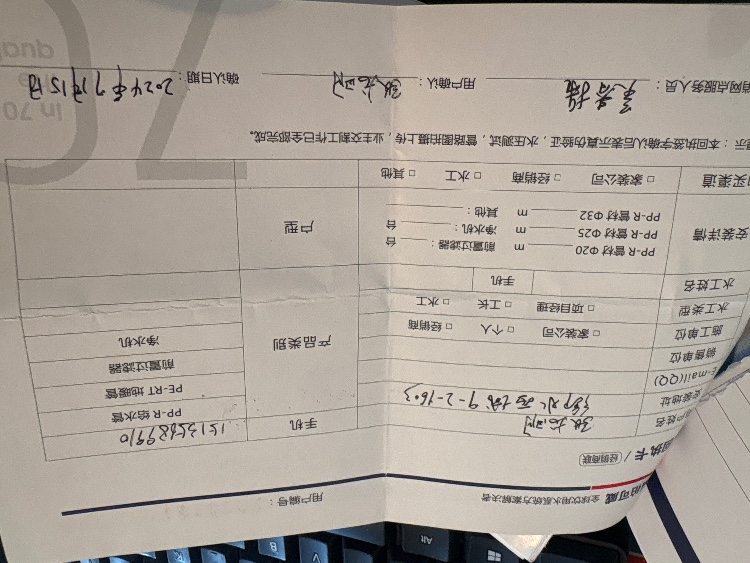 可威 全球饮用水系统方案解决者
用户编号：
执卡 / 经销商联
户姓名
手机 15135689910
安装地址 9-2-1603
E-mail(QQ)
产品类别
PP-R 给水管
PE-RT 地暖管
前置过滤器
净水机
销售单位
施工单位 □ 家装公司 □ 个人 □ 经销商
水工类型 □ 项目经理 □ 工长 □ 水工
水工姓名 手机
安装详情
PP-R 管材 Φ20 m 前置过滤器： 台
PP-R 管材 Φ25 m 净水机： 台
PP-R 管材 Φ32 m 其他：
户型
买渠道 □ 家装公司 □ 经销商 □ 水工 □ 其他
示：本回执签字确认后表示真伪验证，水压测试，管路图拍摄上传，业主交割工作已全部完成。
销网点服务人员：
用户确认：
确认日期：2024年9月15日
in 70
qua
Alt
V
B